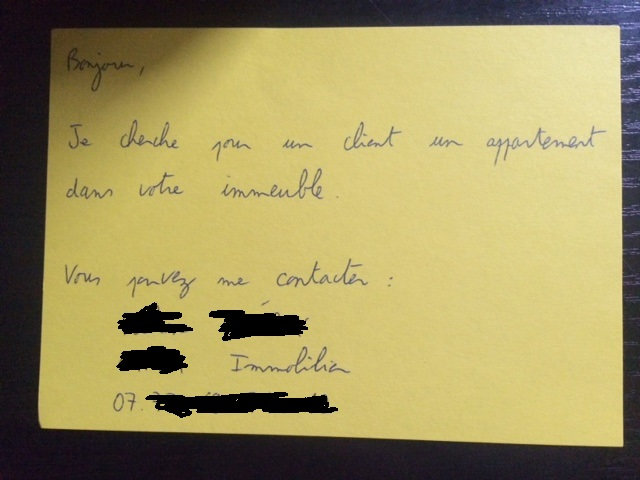 Bonjour,
Je cherche pour un client un appartement
dans votre immeuble.
Vous pouvez me contacter :
Immobilier
07.